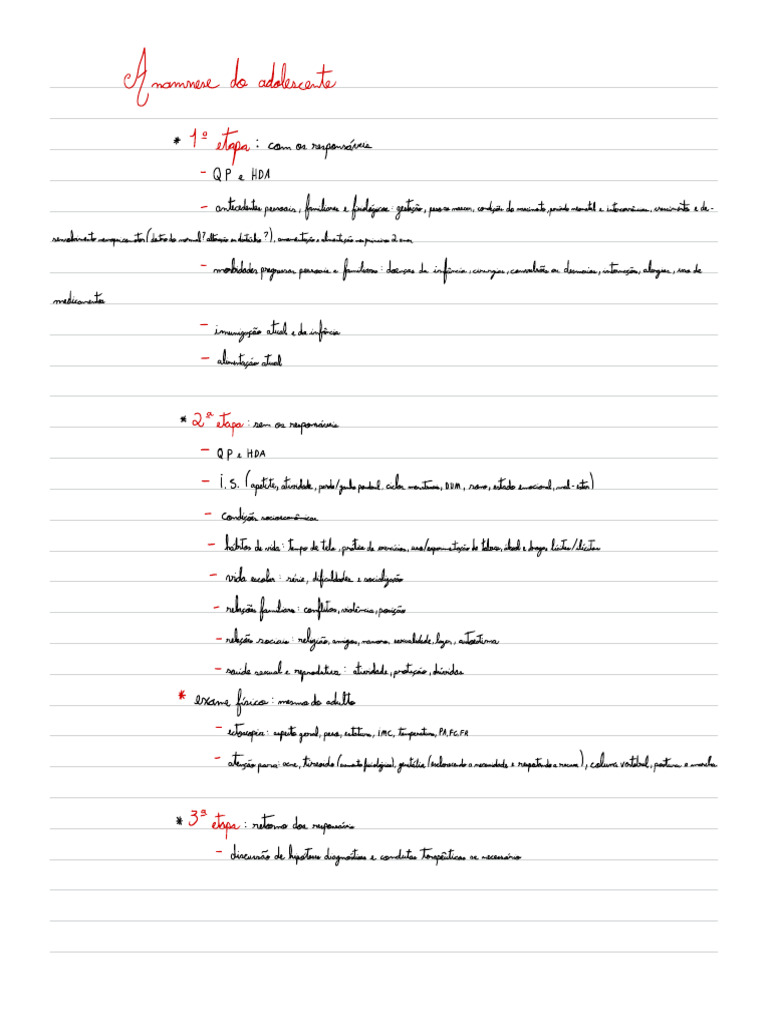 Anamnese do adolescente
* 1º etapa: com os responsáveis
- QP e HDA
- antecedentes pessoais, familiares e fisiológicos: gestação, peso ao nascer, condições do nascimento, período neonatal e intercorrências, crescimento e de-
senvolvimento neuropsicomotor (dentro do normal? alteração ou distúrbio?), amamentação e alimentação nos primeiros 2 anos
- morbidades pregressas pessoais e familiares: doenças da infância, cirurgias, convulsões ou desmaios, internação, alergias, uso de
medicamentos
- imunização atual e da infância
- alimentação atual
* 2ª etapa: sem os responsáveis
- QP e HDA
- I.S. (apetite, atividade, perda/ganho ponderal, ciclos menstruais, DUM, sono, estado emocional, mal-estar)
- condições socioeconômicas
- hábitos de vida: tempo de tela, prática de exercícios, uso/experimentação de tabaco, álcool e drogas lícitas/ilícitas
- vida escolar: série, dificuldades e socialização
- relações familiares: conflitos, violência, posição
- relações sociais: religião, amigos, namoro, sexualidade, lazer, autoestima
- saúde sexual e reprodutiva: atividade, proteção, dúvidas
* exame físico: mesmo do adulto
- ectoscopia: aspecto geral, peso, estatura, IMC, temperatura, PA, FC, FR
- atenção para: acne, tireoide (aumento fisiológico), genitália (esclarecendo a necessidade e respeitando a recusa), coluna vertebral, postura e marcha
* 3ª etapa: retorno dos responsáveis
- discussão de hipóteses diagnósticas e condutas terapêuticas se necessário